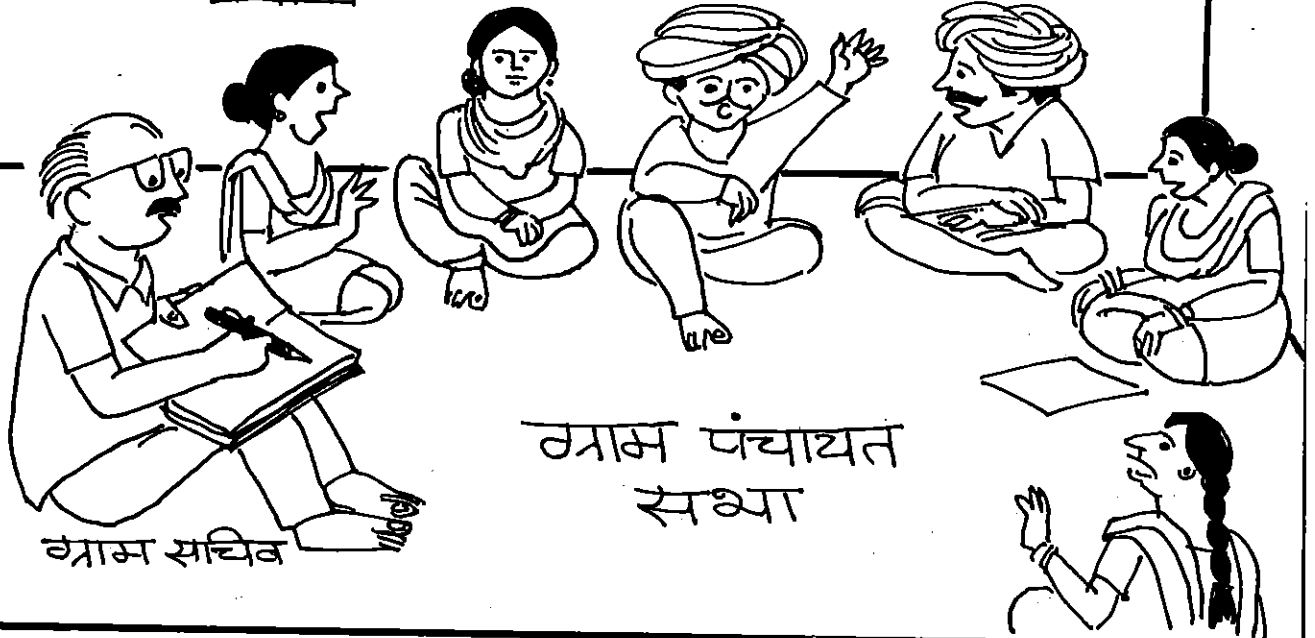 ग्राम पंचायत
सभा
ग्राम सचिव